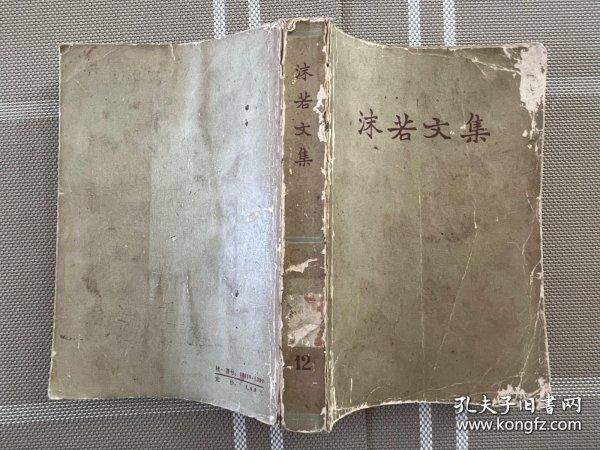 沫若文集
沫若文集
12
统一书号:
定价:
孔夫子旧书网
www.kongfz.com